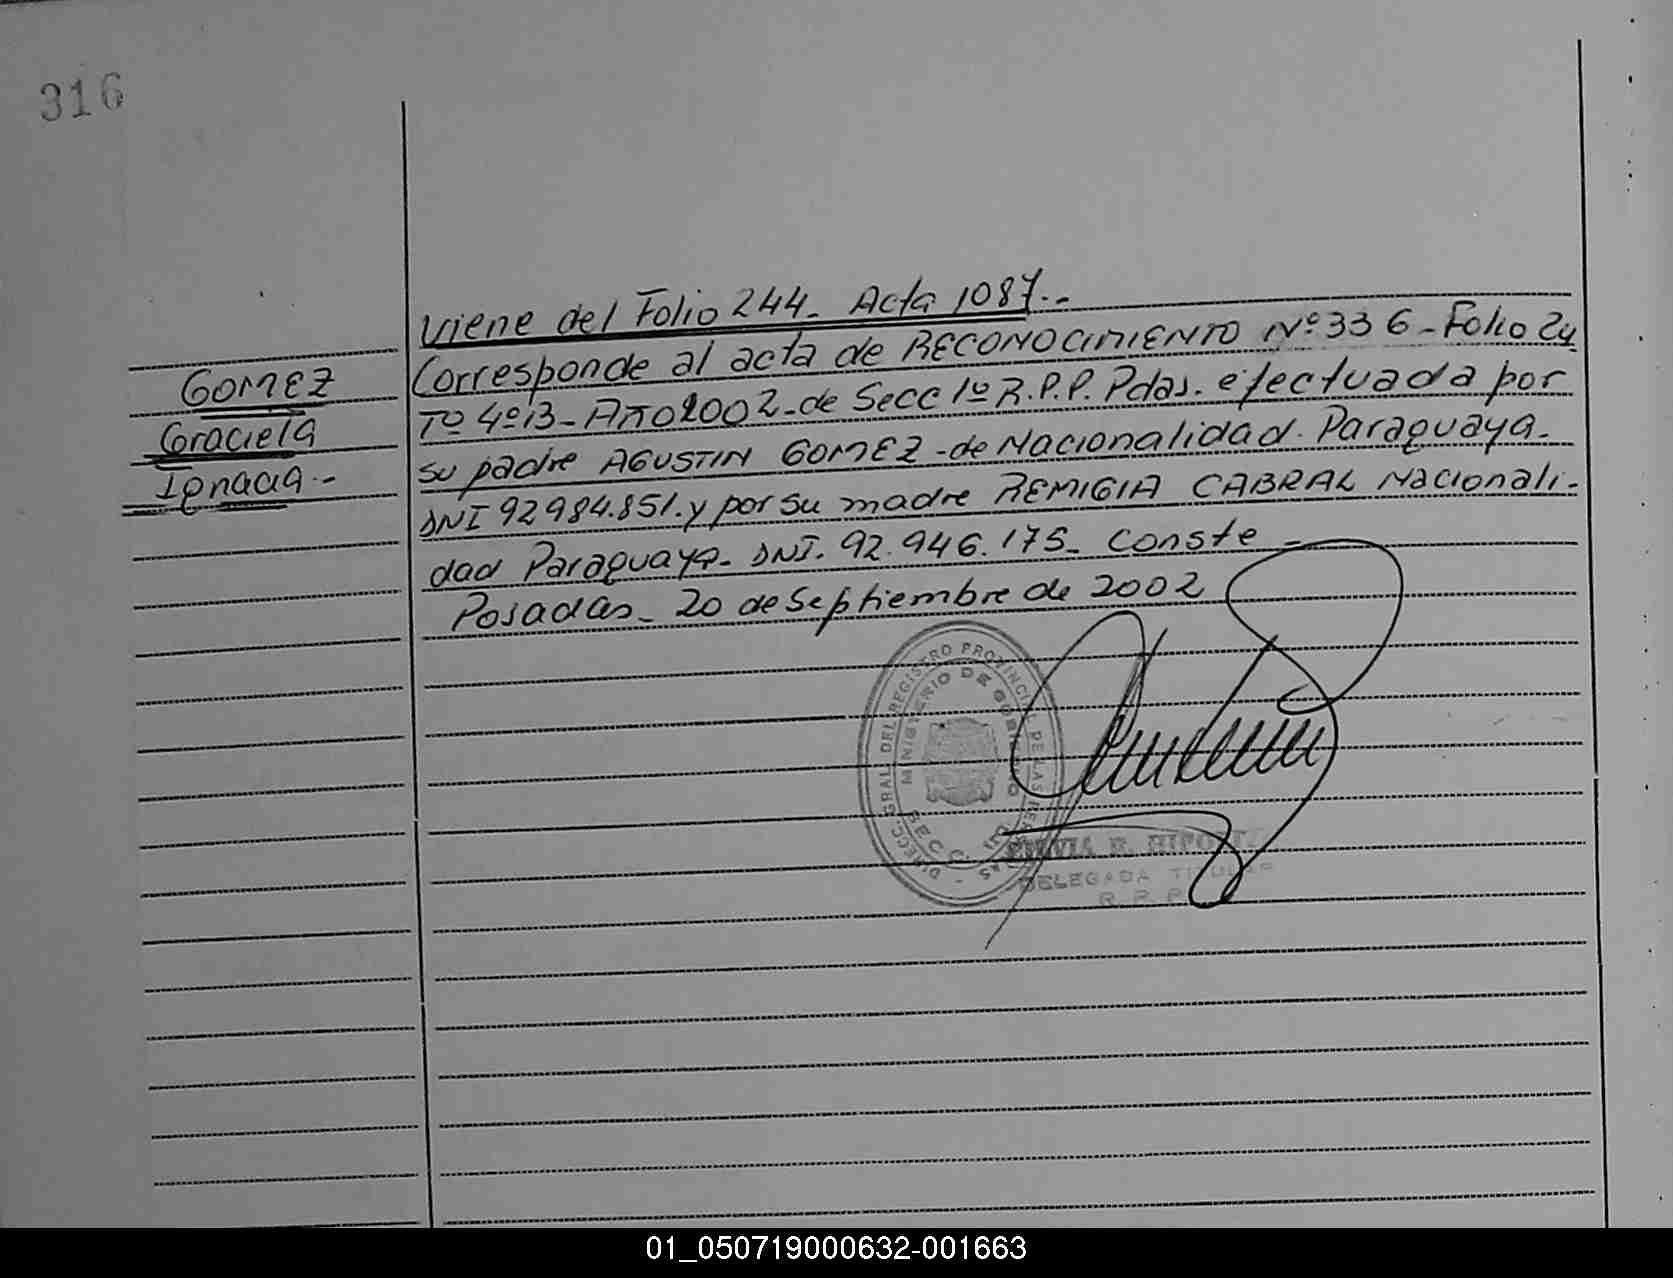 316
Viene del Folio 244. Acta 1087.-
GOMEZ
Graciela
Ignacia.-
Corresponde al acta de RECONOCIMIENTO Nº 336 - Folio 24
Tº 4º13 - Año 2002 - de Secc 1º R.P.P. Pdas. efectuada por
su padre AGUSTIN GOMEZ - de Nacionalidad. Paraguaya.
DNI 92984.851. y por su madre REMIGIA CABRAL Nacionali-
dad Paraguaya. DNI. 92.946.175. Conste -
Posadas. 20 de Septiembre de 2002
DIRECC. GRAL. DEL REGISTRO PROVINCIAL DE LAS PERSONAS
MINISTERIO DE GOBIERNO
SECC.
DELEGADA TITULAR
R. P. P.
01_050719000632-001663